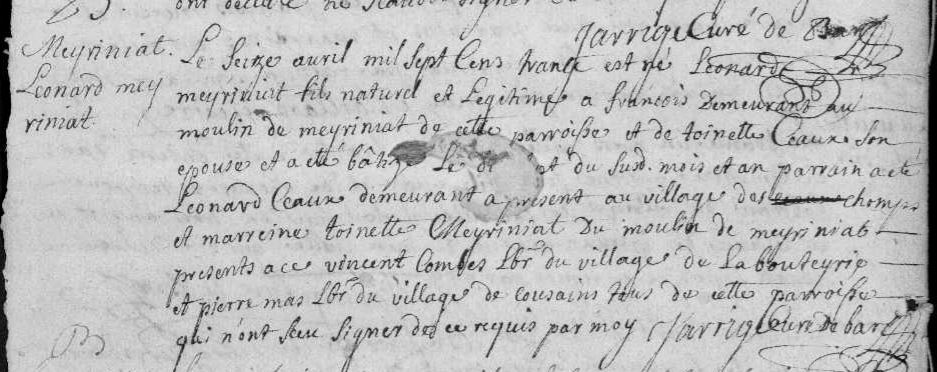 ont déclaré ne
Jarrige Curé de Bar
Meyriniat.
Leonard mey
riniat.
Le Seize avril mil Sept Cens trante est né Léonard
meyriniat fils naturel et Légitime a françois Demeurant au
moulin de meyriniat de cette parroisse et de toinette Ceaux son
epouse et a eté bâtizé Le du susd. mois et an parrain a eté
Léonard Ceaux demeurant a present au village des champs
et marreine toinette Meyriniat Du moulin de meyriniat
presents a ce vincent Combes Lbr du village de Labouteyrie
et pierre mas Lbr du village de cousains tous de cette parroisse
qui n'ont sceu signer de ce requis par moy Jarrige Curé De bar